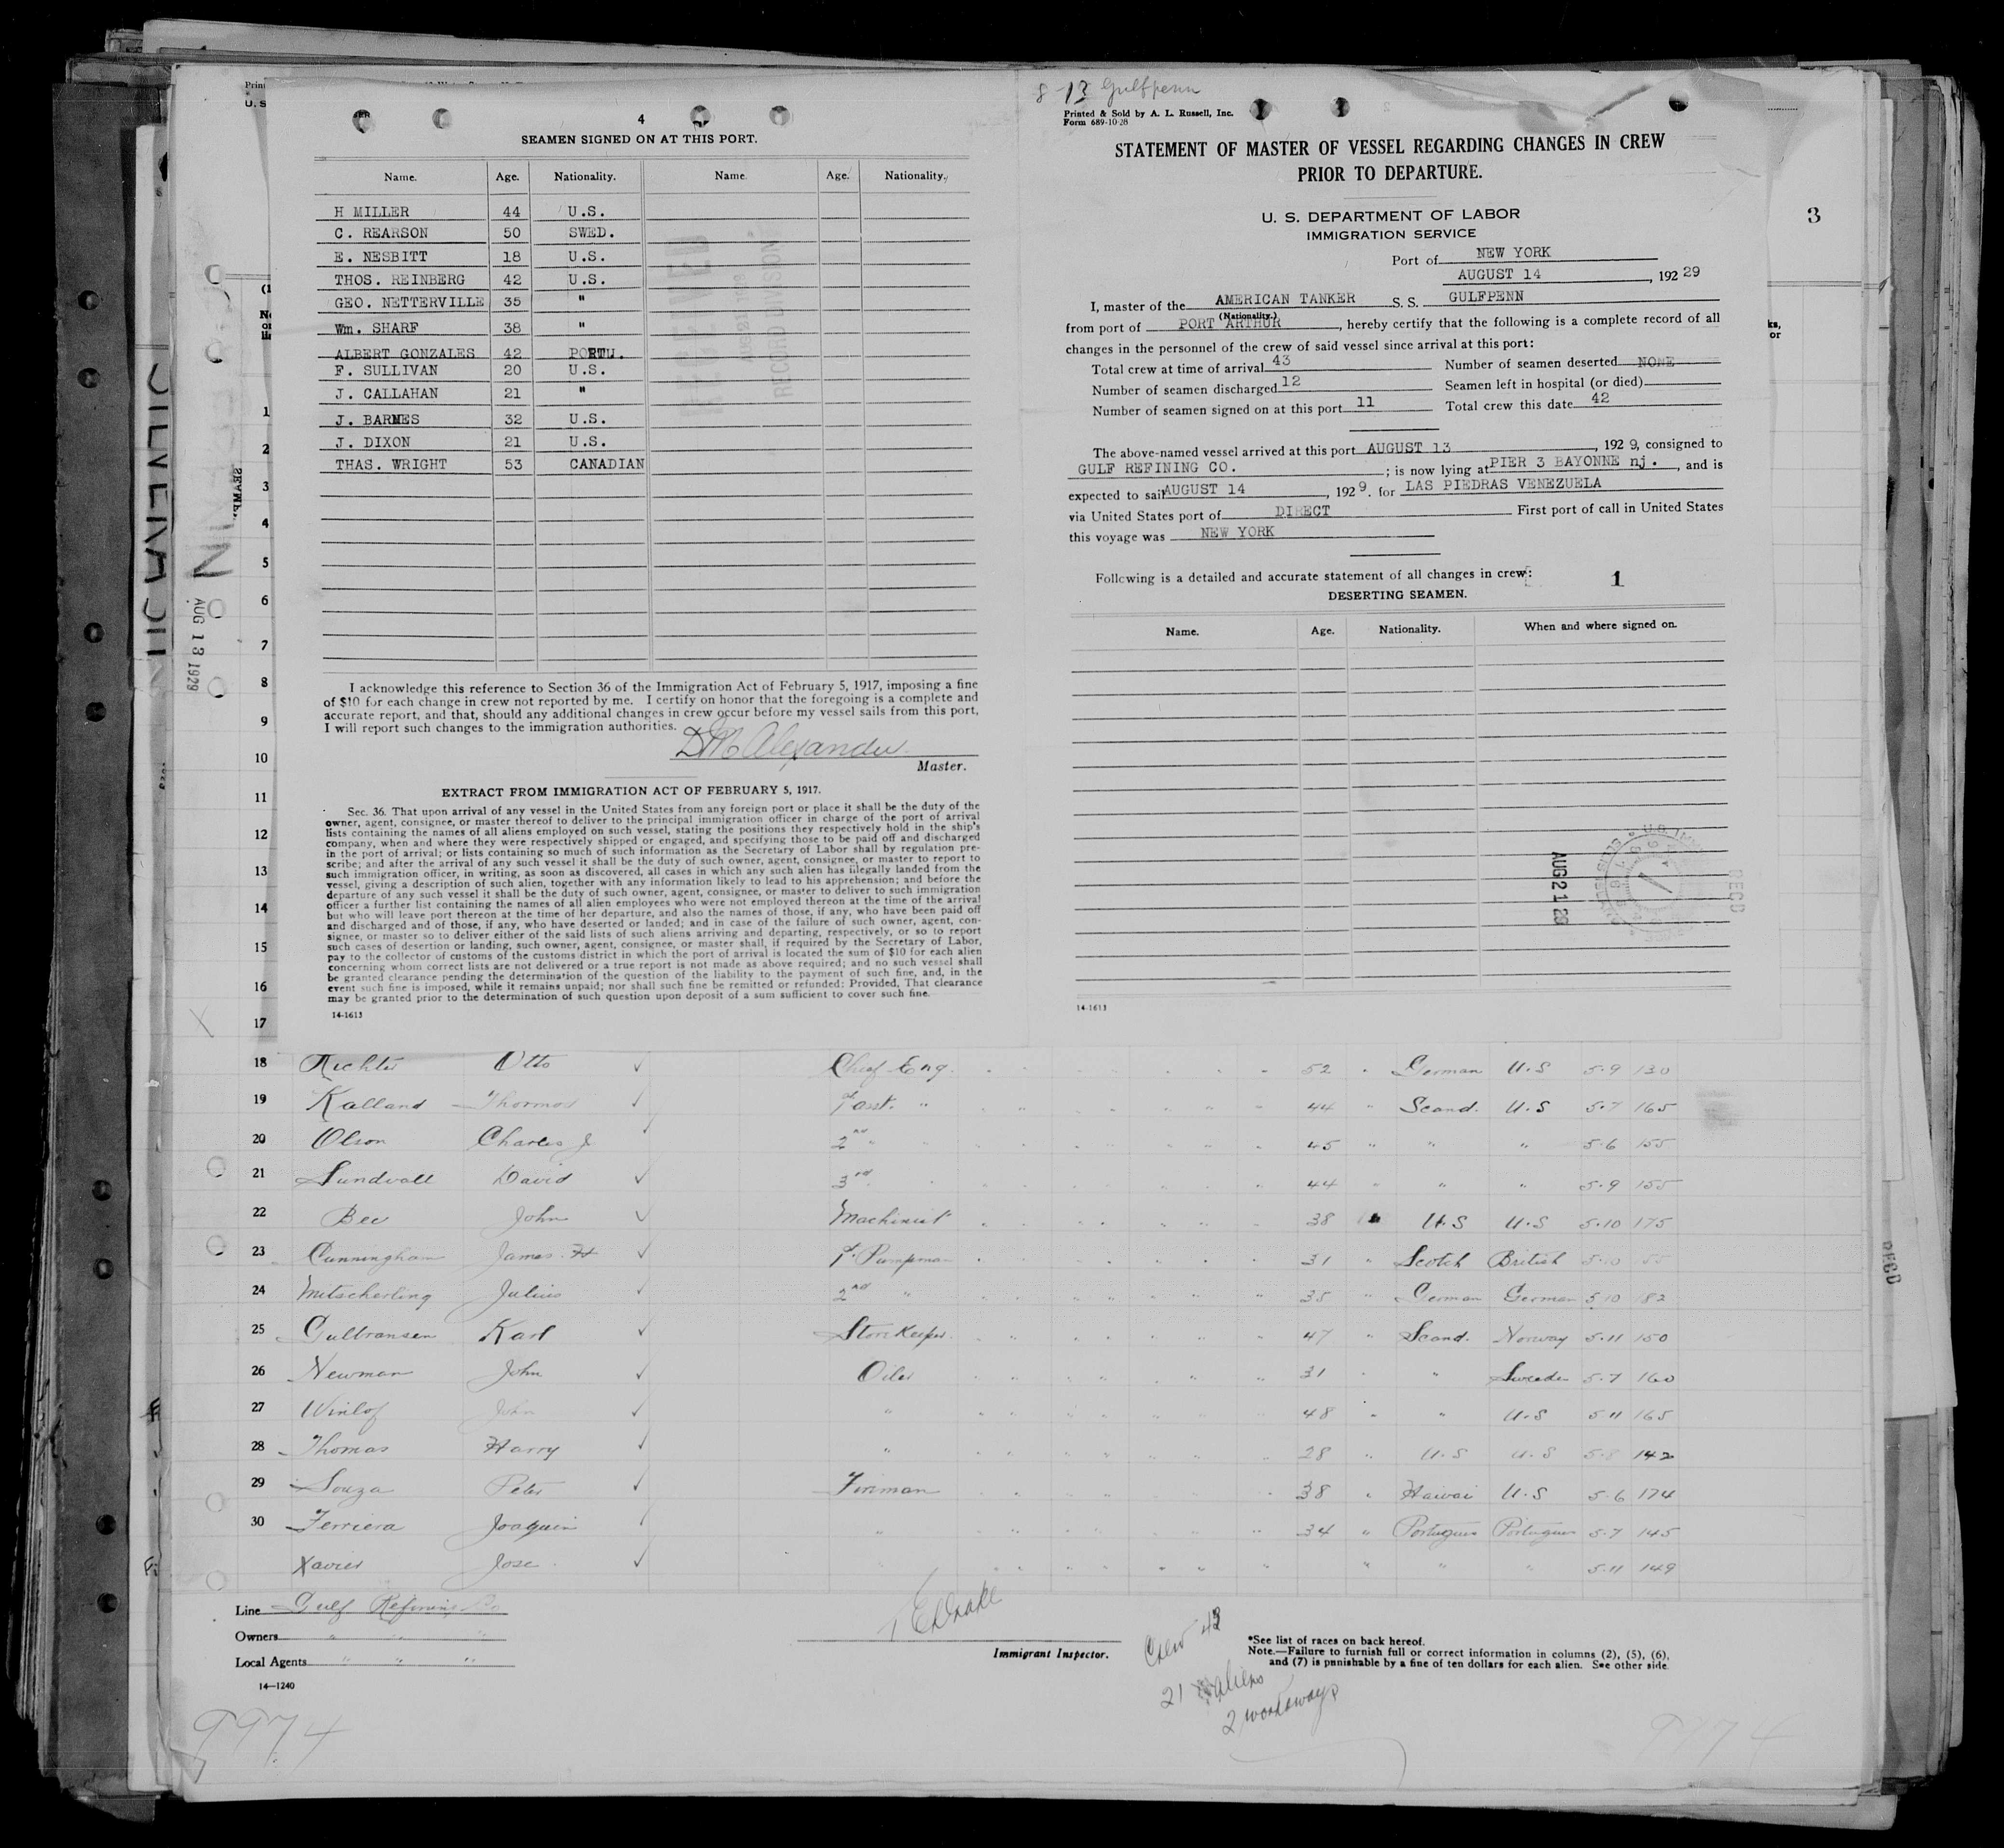 4
SEAMEN SIGNED ON AT THIS PORT.
Name. Age. Nationality. Name. Age. Nationality.
H MILLER 44 U.S.
C. REARSON 50 SWED.
E. NESBITT 18 U.S.
THOS. REINBERG 42 U.S.
GEO. NETTERVILLE 35 "
Wm. SHARF 38 "
ALBERT GONZALES 42 PORTU.
F. SULLIVAN 20 U.S.
J. CALLAHAN 21 "
J. BARNES 32 U.S.
J. DIXON 21 U.S.
THAS. WRIGHT 53 CANADIAN
I acknowledge this reference to Section 36 of the Immigration Act of February 5, 1917, imposing a fine
of $10 for each change in crew not reported by me. I certify on honor that the foregoing is a complete and
accurate report, and that, should any additional changes in crew occur before my vessel sails from this port,
I will report such changes to the immigration authorities.
D M Alexander
Master.
EXTRACT FROM IMMIGRATION ACT OF FEBRUARY 5, 1917.
Sec. 36. That upon arrival of any vessel in the United States from any foreign port or place it shall be the duty of the
owner, agent, consignee, or master thereof to deliver to the principal immigration officer in charge of the port of arrival
lists containing the names of all aliens employed on such vessel, stating the positions they respectively hold in the ship's
company, when and where they were respectively shipped or engaged, and specifying those to be paid off and discharged
in the port of arrival; or lists containing so much of such information as the Secretary of Labor shall by regulation pre-
scribe; and after the arrival of any such vessel it shall be the duty of such owner, agent, consignee, or master to report to
such immigration officer, in writing, as soon as discovered, all cases in which any such alien has illegally landed from the
vessel, giving a description of such alien, together with any information likely to lead to his apprehension; and before the
departure of any such vessel it shall be the duty of such owner, agent, consignee, or master to deliver to such immigration
officer a further list containing the names of all alien employees who were not employed thereon at the time of the arrival
but who will leave port thereon at the time of her departure, and also the names of those, if any, who have been paid off
and discharged and of those, if any, who have deserted or landed; and in case of the failure of such owner, agent, con-
signee, or master so to deliver either of the said lists of such aliens arriving and departing, respectively, or so to report
such cases of desertion or landing, such owner, agent, consignee, or master shall, if required by the Secretary of Labor,
pay to the collector of customs of the customs district in which the port of arrival is located the sum of $10 for each alien
concerning whom correct lists are not delivered or a true report is not made as above required; and no such vessel shall
be granted clearance pending the determination of the question of the liability to the payment of such fine, and, in the
event such fine is imposed, while it remains unpaid; nor shall such fine be remitted or refunded: Provided, That clearance
may be granted prior to the determination of such question upon deposit of a sum sufficient to cover such fine.
14-1613
8-13 Gulfpenn
Printed & Sold by A. L. Russell, Inc.
Form 689-10-28
STATEMENT OF MASTER OF VESSEL REGARDING CHANGES IN CREW
PRIOR TO DEPARTURE.
U. S. DEPARTMENT OF LABOR
IMMIGRATION SERVICE
3
Port of NEW YORK
AUGUST 14, 192 29
I, master of the AMERICAN TANKER S. S. GULFPENN
(Nationality.)
from port of PORT ARTHUR, hereby certify that the following is a complete record of all
changes in the personnel of the crew of said vessel since arrival at this port:
Total crew at time of arrival 43 Number of seamen deserted NONE
Number of seamen discharged 12 Seamen left in hospital (or died)
Number of seamen signed on at this port 11 Total crew this date 42
The above-named vessel arrived at this port AUGUST 13, 192 9, consigned to
GULF REFINING CO.; is now lying at PIER 3 BAYONNE nj., and is
expected to sail AUGUST 14, 192 9. for LAS PIEDRAS VENEZUELA
via United States port of DIRECT First port of call in United States
this voyage was NEW YORK
Following is a detailed and accurate statement of all changes in crew:
1
DESERTING SEAMEN.
Name. Age. Nationality. When and where signed on.
AUG 21 29
RECD
14-1613
AUG 13 1929
1
2
3
4
5
6
7
8
9
10
11
12
13
14
15
16
17
18 Richter Otto Chief Eng. 52 " German U.S 5.9 130
19 Kalland Thormod 1st asst. " 44 " Scand. U.S 5.7 165
20 Olson Charles J 2nd " 45 " " " 5.6 155
21 Sundvall David 3rd 44 " " " 5.9 155
22 Bee John Machinist 38 U.S U.S 5.10 175
23 Cunningham James H 1st Pumpman 31 " Scotch British 5.10 155
24 Mitscherling Julius 2nd " 35 " German German 5.10 182
25 Gulbransen Karl StoreKeeper 47 " Scand. Norway 5.11 150
26 Newman John Oiler 31 " " Sweden 5.7 160
27 Winlof John " 48 " " U.S 5.11 165
28 Thomas Harry " 28 " U.S U.S 5.8 142
29 Souza Peter Fireman 38 " Hawai U.S 5.6 174
30 Ferriera Joaquin " 34 " Portugues Portugues 5.7 145
Xavier Jose " " " 5.11 149
Line Gulf Refining Co
Owners " " "
Local Agents " " "
14—1240
Immigrant Inspector.
Crew 43
21 aliens
2 workaways
*See list of races on back hereof.
Note.—Failure to furnish full or correct information in columns (2), (5), (6),
and (7) is punishable by a fine of ten dollars for each alien. See other side.
RECD
9974